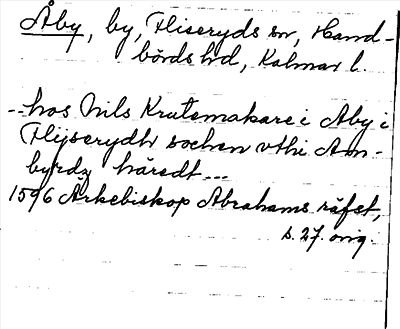 Åby, by, Fliseryds sn, Hand-
börds hd, Kalmar l.
-- hos Nils Krutemakare i Aby i
Flijserydh sochen vthi Am-
byrdz häredt ---
1596 Ärkebiskop Abrahams räfst,
s. 27. orig.